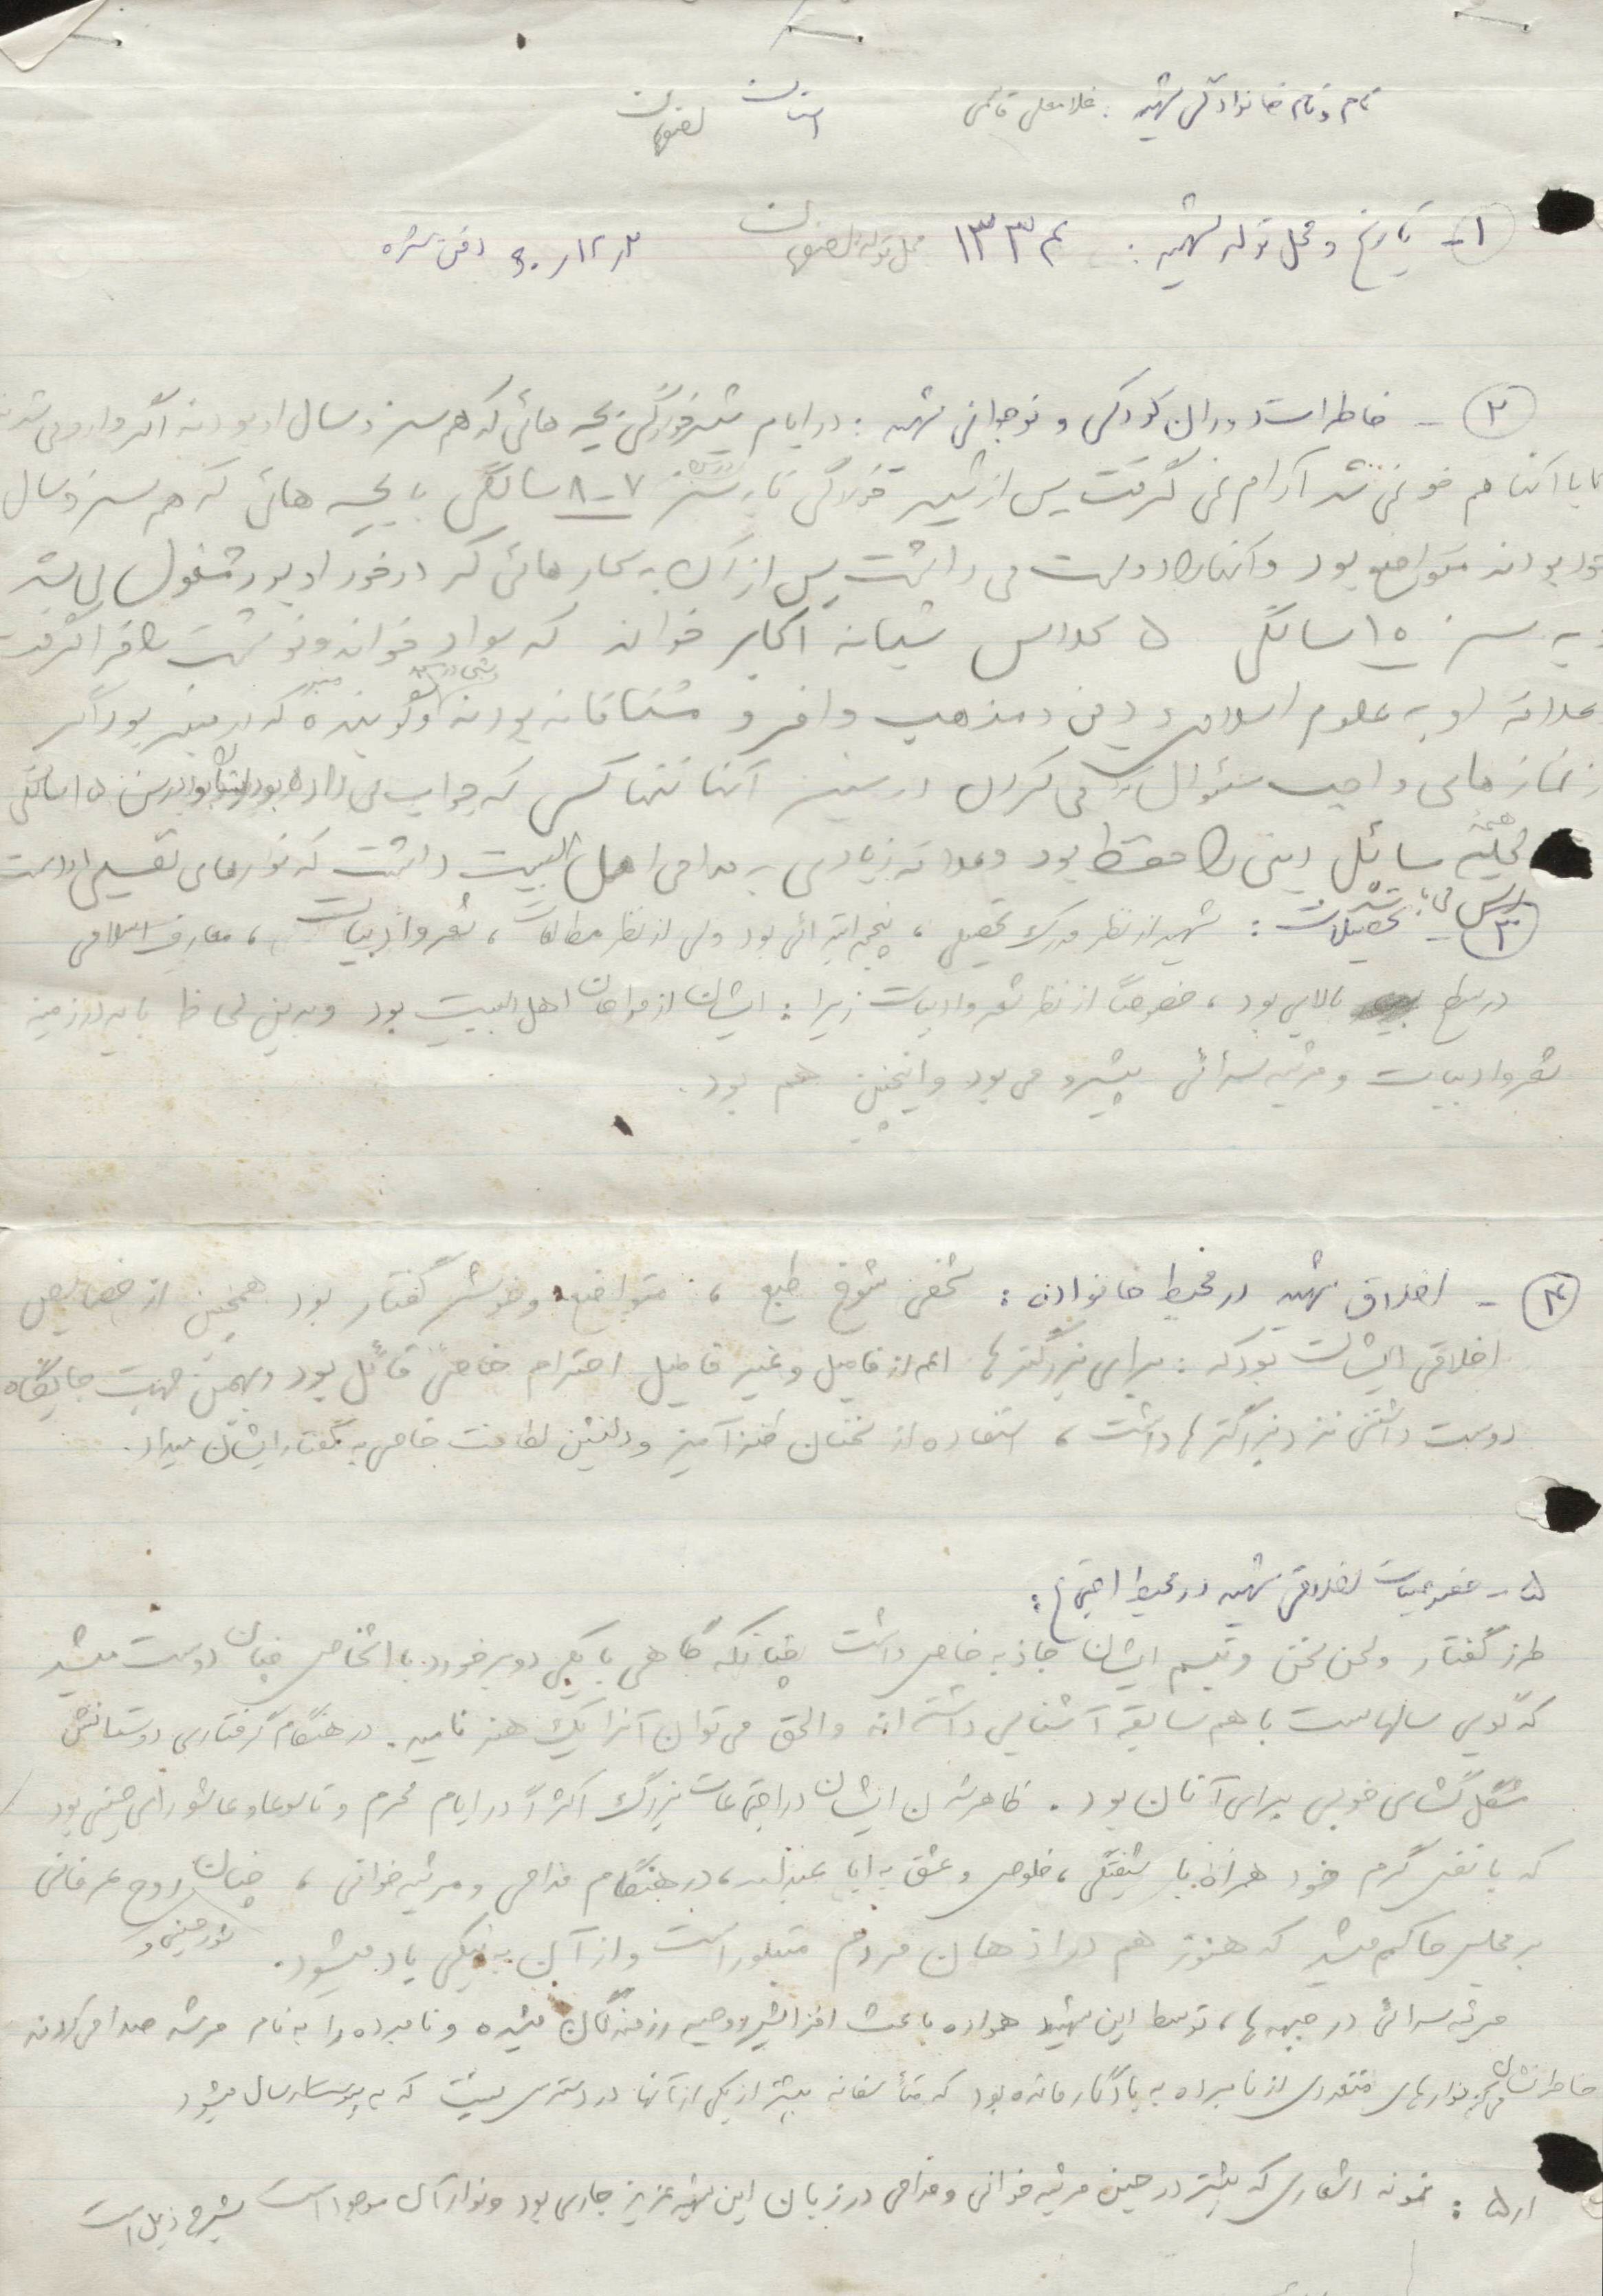 نام و نام خانوادگی شهید : غلامعلی قائمی استان اصفهان
۱- تاریخ و محل تولد شهید : ۱۳۳۴ محل تولد اصفهان دفن شده
۲ - خاطرات دوران کودکی و نوجوانی شهید : در ایام شیرخوارگی بچه هائی که هم سن و سال او بودند اگر وارد می شدند
تا با آنها هم خو نمی شد آرام نمی گرفت پس از شیر خوارگی تا به سن ۷-۸ سالگی با بچه هائی که هم سن و سال
خود بودند متواضع بود و آنها را دوست می داشت پس از آن به کارهائی که در خور او بود مشغول می شد
به سن ۱۵ سالگی ۵ کلاس شبانه اکابر خواند که سواد خواندن و نوشتن را فرا گرفت
علاقه او به علوم اسلامی و دینی و مذهب وافر و مشتاقانه بود و گوینده که در منبر بود اگر
از نمازهای واجب سئوال می کردن در بین آنها تنها کسی که جواب می داد او بود در سن ۱۵ سالگی
کلیه مسائل دینی را حفظ بود و علاقه زیادی به مداحی اهل البیت داشت که نوارهای تقدیمی او است
۳ - تحصیلات : شهید از نظر مدرک تحصیلی ، پنجم ابتدائی بود ولی از نظر مطالعات ، شعر و ادبیات ، معارف اسلامی
در سطح بالایی بود ، خصوصاً از نظر شعر و ادبیات زیرا : ایشان از مداحان اهل البیت بود و بدین لحاظ باید در زمینه
شعر و ادبیات و مرثیه سرائی پیشرو می بود و اینچنین هم بود .
۴ - اخلاق شهید در محیط خانواده : شخصی شوخ طبع ، متواضع و خوش گفتار بود همچنین از خصایص
اخلاقی ایشان بود که : برای بزرگترها اعم از فامیل و غیر فامیل احترام خاصی قائل بود و بهمین جهت جایگاه
دوست داشتنی نزد بزرگترها داشت ، استفاده از سخنان طنز آمیز و دلنشین لطافت خاصی به گفتار ایشان میداد .
۵ - خصوصیات اخلاقی شهید در محیط اجتماع :
طرز گفتار و لحن سخن و تبسم ایشان جاذبه خاصی داشت چنانکه گاهی با یکی دو برخورد با اشخاص چنان دوست میشد
که گویی سالهاست با هم سابقه آشنایی داشته اند والحق می توان آنرا یک هنر نامید . در هنگام گرفتاری دوستانش
مشکل گشای خوبی برای آنان بود . ظاهر شدن ایشان در اجتماعات بزرگ اکثراً در ایام محرم و تاسوعا و عاشورای حسینی بود
که با نفس گرم خود همراه با شیفتگی ، خلوص و عشق به ابا عبدالله ، در هنگام مداحی و مرثیه خوانی ، چنان شور حسینی و روح عرفانی
بر مجلس حاکم میشد که هنوز هم در اذهان مردم متبلور است و از آن به نیکی یاد میشود .
مرثیه سرائی در جبهه ها ، توسط این شهید همواره باعث افزایش روحیه رزمندگان میشده و نامبرده را به نام مرشد صدا می کردند
خاطر نشان می کنیم نوارهای متعددی از نامبرده به یادگار مانده بود که متأسفانه بیشتر از یکی از آنها در دسترس نیست که به پیوست ارسال میشود
۵/۱ : نمونه اشعاری که بیشتر در حین مرثیه خوانی و مداحی در زبان این شهید عزیز جاری بود و نوار آن موجود است بشرح ذیل است